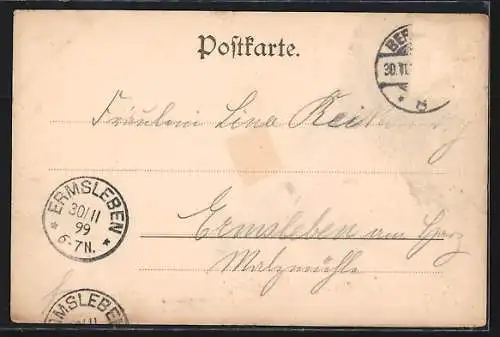 Postkarte.
BER
30.11.
8
Fräulein Lina
ERMSLEBEN
30/11
99
6-7N.
Ermsleben am Harz
Malzmühle
ERMSLEBEN